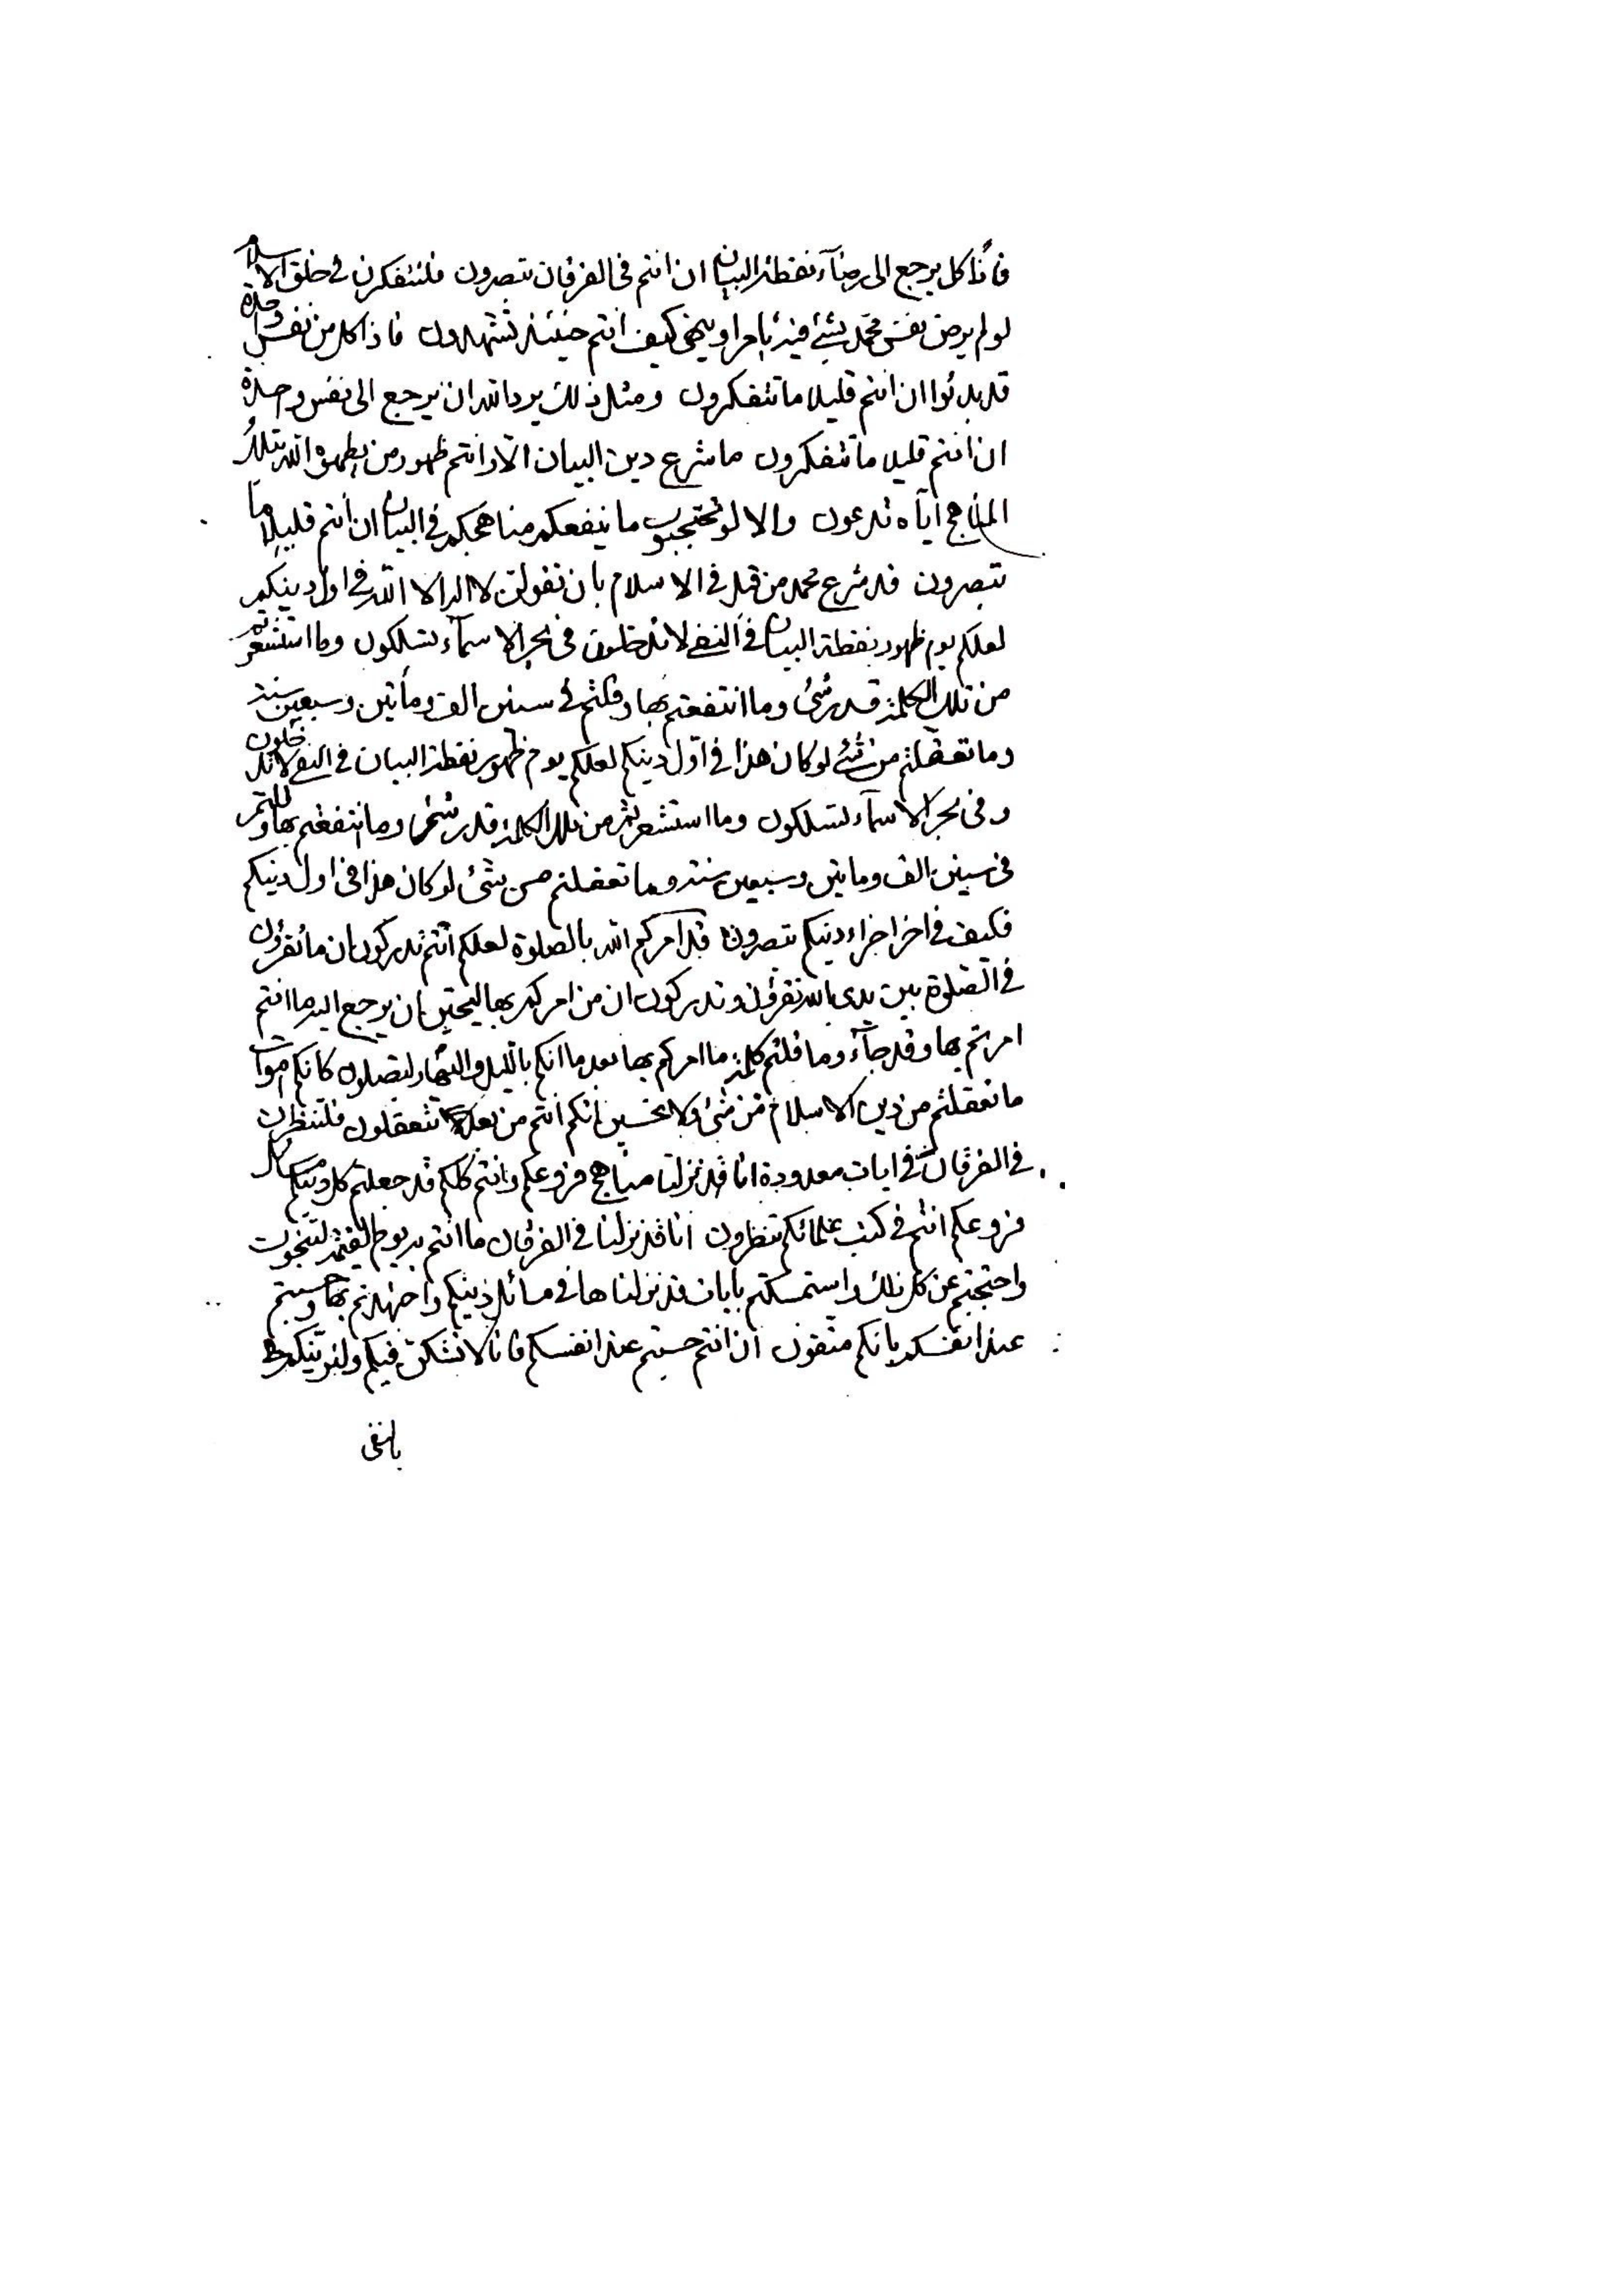 فاذا كل يرجع الى رضآء نقطة البيان ان انتم فى الفرقان تبصرون فلتتفكرن فى خلق الاسلام
لو لم يرض نفس محمد بشئ فيه يامر او ينهى كيف انتم حينئذ تشهدون فاذا كل من نفس واحدة
قد بدئوا ان انتم قليلا ما تتفكرون ومثل ذلك يرد الله ان يرجع الى نفس واحدة
ان انتم قليلا ما تتفكرون ما شرع دين البيان الا وانتم ظهور من يظهره الله بتلك
المناهج اياه تدعون والا لو تحتجبون ما ينفعكم مناهجكم فى البيان ان انتم قليلا ما
تبصرون قد شرع محمد من قبل فى الاسلام بان تقولن لا اله الا الله فى اول دينكم
لعلكم يوم ظهور نقطة البيان فى النفى لا تدخلون فى بحر الاسمآء تسلكون وما استشعرتم
من تلك الكلمة قدر شئ وما انتفعتم بها وقلتم فى سنين الف ومأتين وسبعين سنة
وما تعقلتم من شئ لو كان هذا فى اول دينكم لعلكم يوم ظهور نقطة البيان فى النفى لا تدخلون
و فى بحر الاسمآء لتسلكون وما استشعرتم من تلك الكلمة قدر شئ وما انتفعتم بها وقلتم
فى سنين الف ومايتن وسبعين سنة وما تعقلتم من شئ لو كان هذا فى اول دينكم
فكيف فى اخر اجزاء دينكم تبصرون قد امركم الله بالصلوة لعلكم انتم تدركون ان ما تقرؤن
فى الصلوة بين يدى الله تقرؤن وتدركون ان من امركم بها ليحبن ان يرجع اليه ما انتم
امرتم بها وقد جآء وما قلتم كلمة ما امركم بها بعد ما انكم بالليل والنهار لتصلون كانكم اموات
ما تعقلتم من دين الاسلام من شئ ولا تحسبن انكم انتم من بعد تتعقلون فلتنظرن
فى الفرقان فى ايات معدودة انا قد نزلنا مناهج فروعكم وانتم كلكم قد جعلتم كل دينكم مسائل
فروعكم انتم فى كتب علمائكم تنظرون انا قد نزلنا فى الفرقان ما انتم به يوم القيمة لتنجون
واحتجبتم عن كل ذلك واستمسكتم بايات قد نزلناها فى مسائل دينكم واجتهدتم بها وحسبتم
عند انفسكم بانكم متقون ان انتم حسبتم عند انفسكم فانا لا نشكن فيكم ولنربينكم
بالنفى